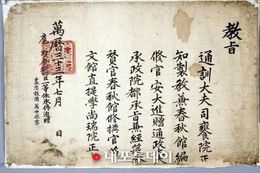 教旨
通訓大夫司饔院正
知製教兼春秋館編
修官安大進贈通政
承政院都承旨兼經筵
贊官春秋館修撰官
文館直提學尚瑞院正
萬曆三十三年七月 日
내포투데이